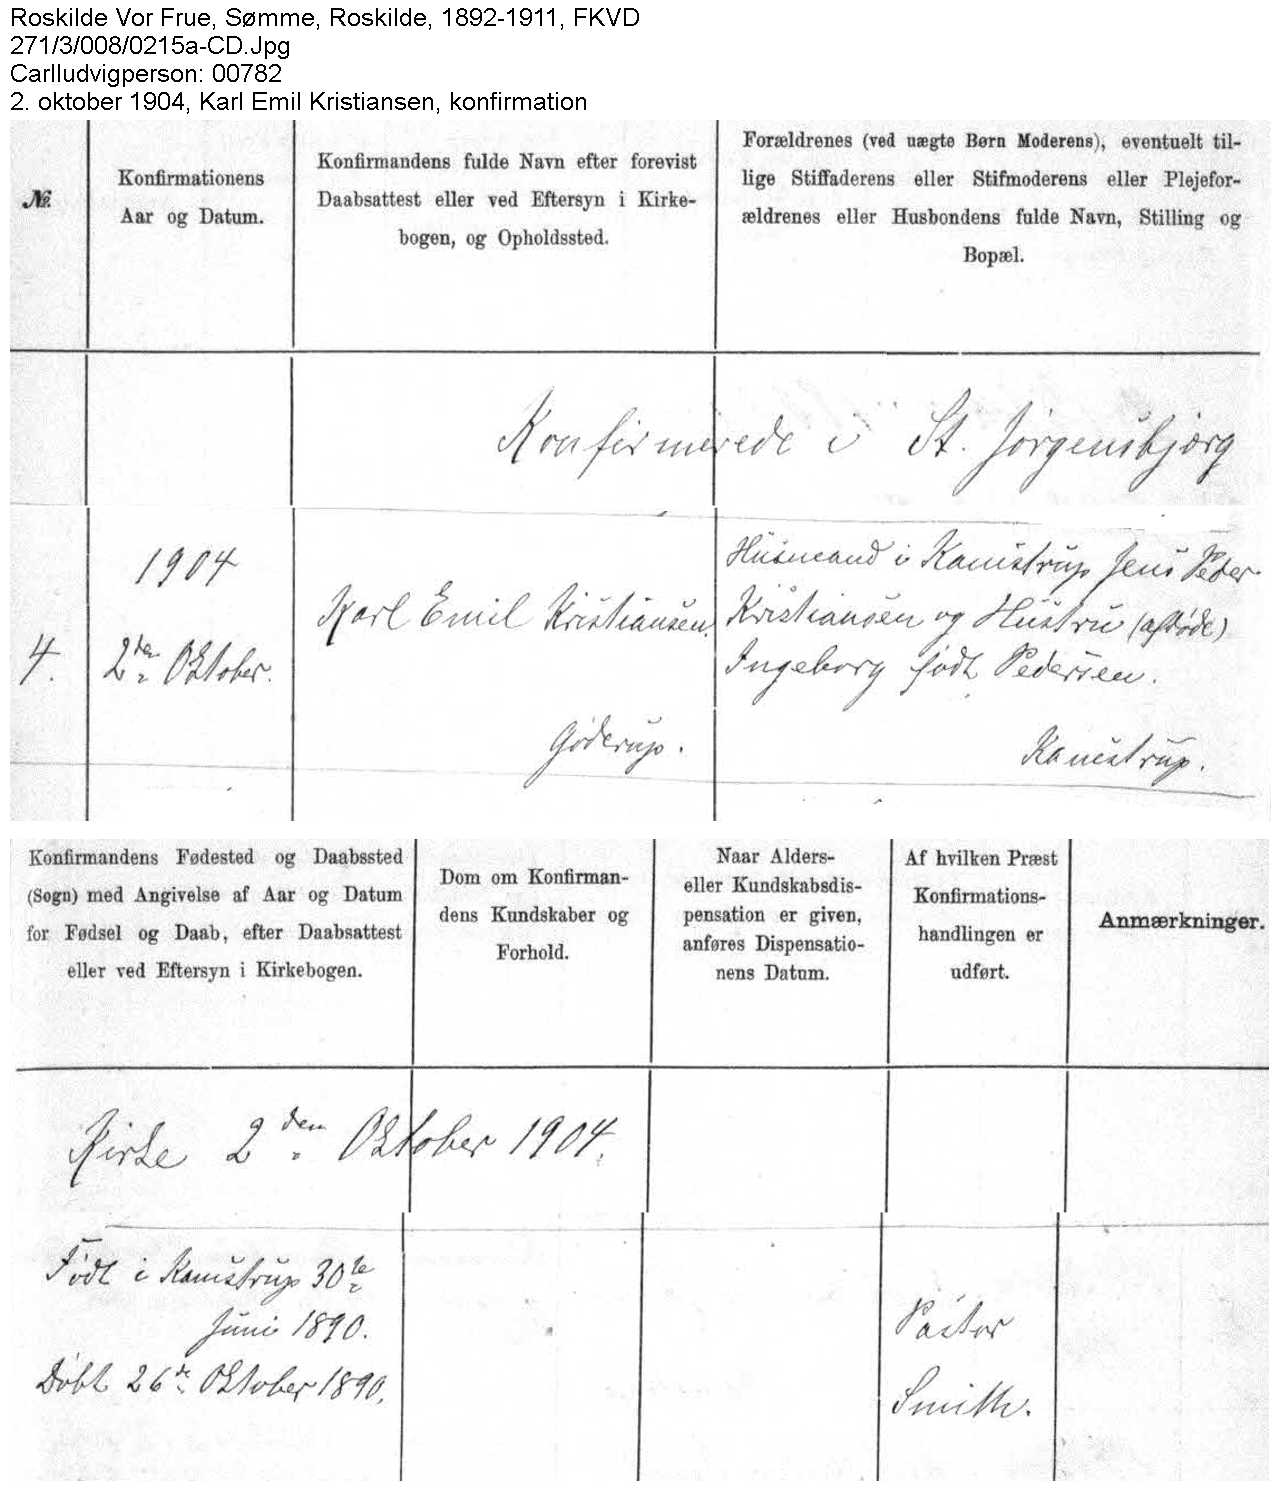 Roskilde Vor Frue, Sømme, Roskilde, 1892-1911, FKVD
271/3/008/0215a-CD.Jpg
Carlludvigperson: 00782
2. oktober 1904, Karl Emil Kristiansen, konfirmation
№
Konfirmationens
Aar og Datum.
Konfirmandens fulde Navn efter forevist
Daabsattest eller ved Eftersyn i Kirke-
bogen, og Opholdssted.
Forældrenes (ved uægte Børn Moderens), eventuelt til-
lige Stiffaderens eller Stifmoderens eller Plejefor-
ældrenes eller Husbondens fulde Navn, Stilling og
Bopæl.
Konfirmerede i St. Jörgensbjerg
4.
1904
2den Oktober.
Karl Emil Kristiansen.
Göderup.
Husmand i Kamstrup Jens Peder
Kristiansen og Hustru (afdøde)
Ingeborg født Pedersen.
Kamstrup.
Konfirmandens Fødested og Daabssted
(Sogn) med Angivelse af Aar og Datum
for Fødsel og Daab, efter Daabsattest
eller ved Eftersyn i Kirkebogen.
Dom om Konfirman-
dens Kundskaber og
Forhold.
Naar Alders-
eller Kundskabsdis-
pensation er given,
anføres Dispensatio-
nens Datum.
Af hvilken Præst
Konfirmations-
handlingen er
udført.
Anmærkninger.
Kirke 2den Oktober 1904.
Födt i Kamstrup 30te
Juni 1890.
Döbt 26de Oktober 1890.
Pastor
Smith.